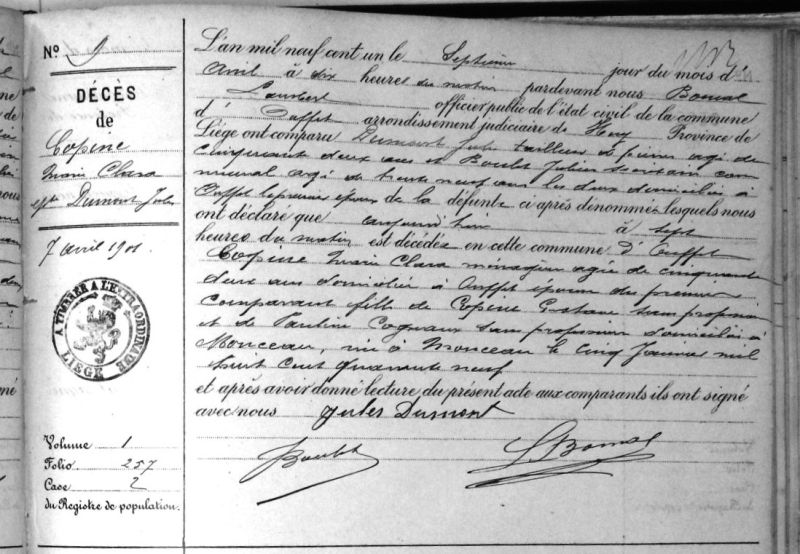 N° 9
DÉCÈS
de
Copine
Marie Clara
epse Dumont Jules
7 avril 1901
A TIMBRER A L'EXTRAORDINAIRE
LIÉGE
Volume 1
Folio 257
Case 2
du Registre de population.
L'an mil neuf cent un le Septième jour du mois d'
Avril à dix heures du matin pardevant nous Bomal
Lambert officier public de l'état civil de la commune
d' Ouffet arrondissement judiciaire de Huy Province de
Liége ont comparu Dumont Jules tailleur de pierres agé de
cinquante deux ans et Boulet Julien Secrétaire com
munal agé de trente neuf ans les deux domiciliés à
Ouffet le premier époux de la défunte ci après dénommée lesquels nous
ont déclaré que aujourd'hui à sept
heures du matin est décédée en cette commune d' Ouffet
Copine Marie Clara ménagère agée de cinquante
deux ans domiciliée à Ouffet épouse du premier
comparant fille de Copine Gustave sans profession
et de Pauline Cognaux sans profession domiciliés à
Monceau, née à Monceau le cinq Janvier mil
huit cent quarante neuf
et après avoir donné lecture du présent acte aux comparants ils ont signé
avec nous Jules Dumont
JBoulet
L. Bomal